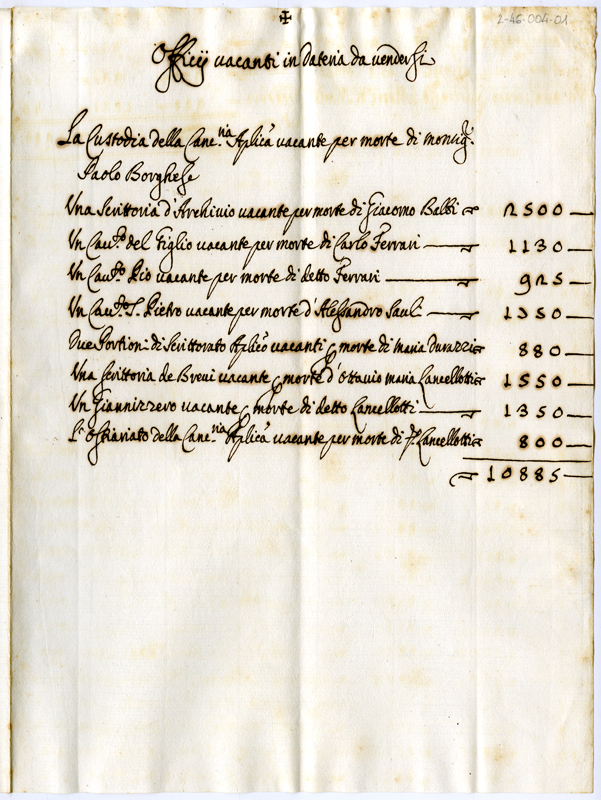 2-46-004-01
✠
Officij vacanti in Dateria da vendersi
La Custodia della Canc.ria Aplica vacante per morte di monsig.r
Paolo Borghese
Una Scrittoria d'Archivio vacante per morte di Giacomo Balbi 2500
Un Cau.to del Giglio vacante per morte di Carlo Ferrari 1130
Un Cau.to Pio vacante per morte di detto Ferrari 925
Un Cau.to S. Pietro vacante per morte d'Alessandro Sauli 1350
Due Portioni di Scrittorato Aplico vacanti p morte di maria Durazzi 880
Una Scrittoria de Brevi vacante p morte d'Ottavio maria Lancellotti 1550
Un Giannizzero vacante p morte di detto Lancellotti 1350
L'Ostiariato della Canc.ria Aplica vacante per morte di Lancellotti 800
10885